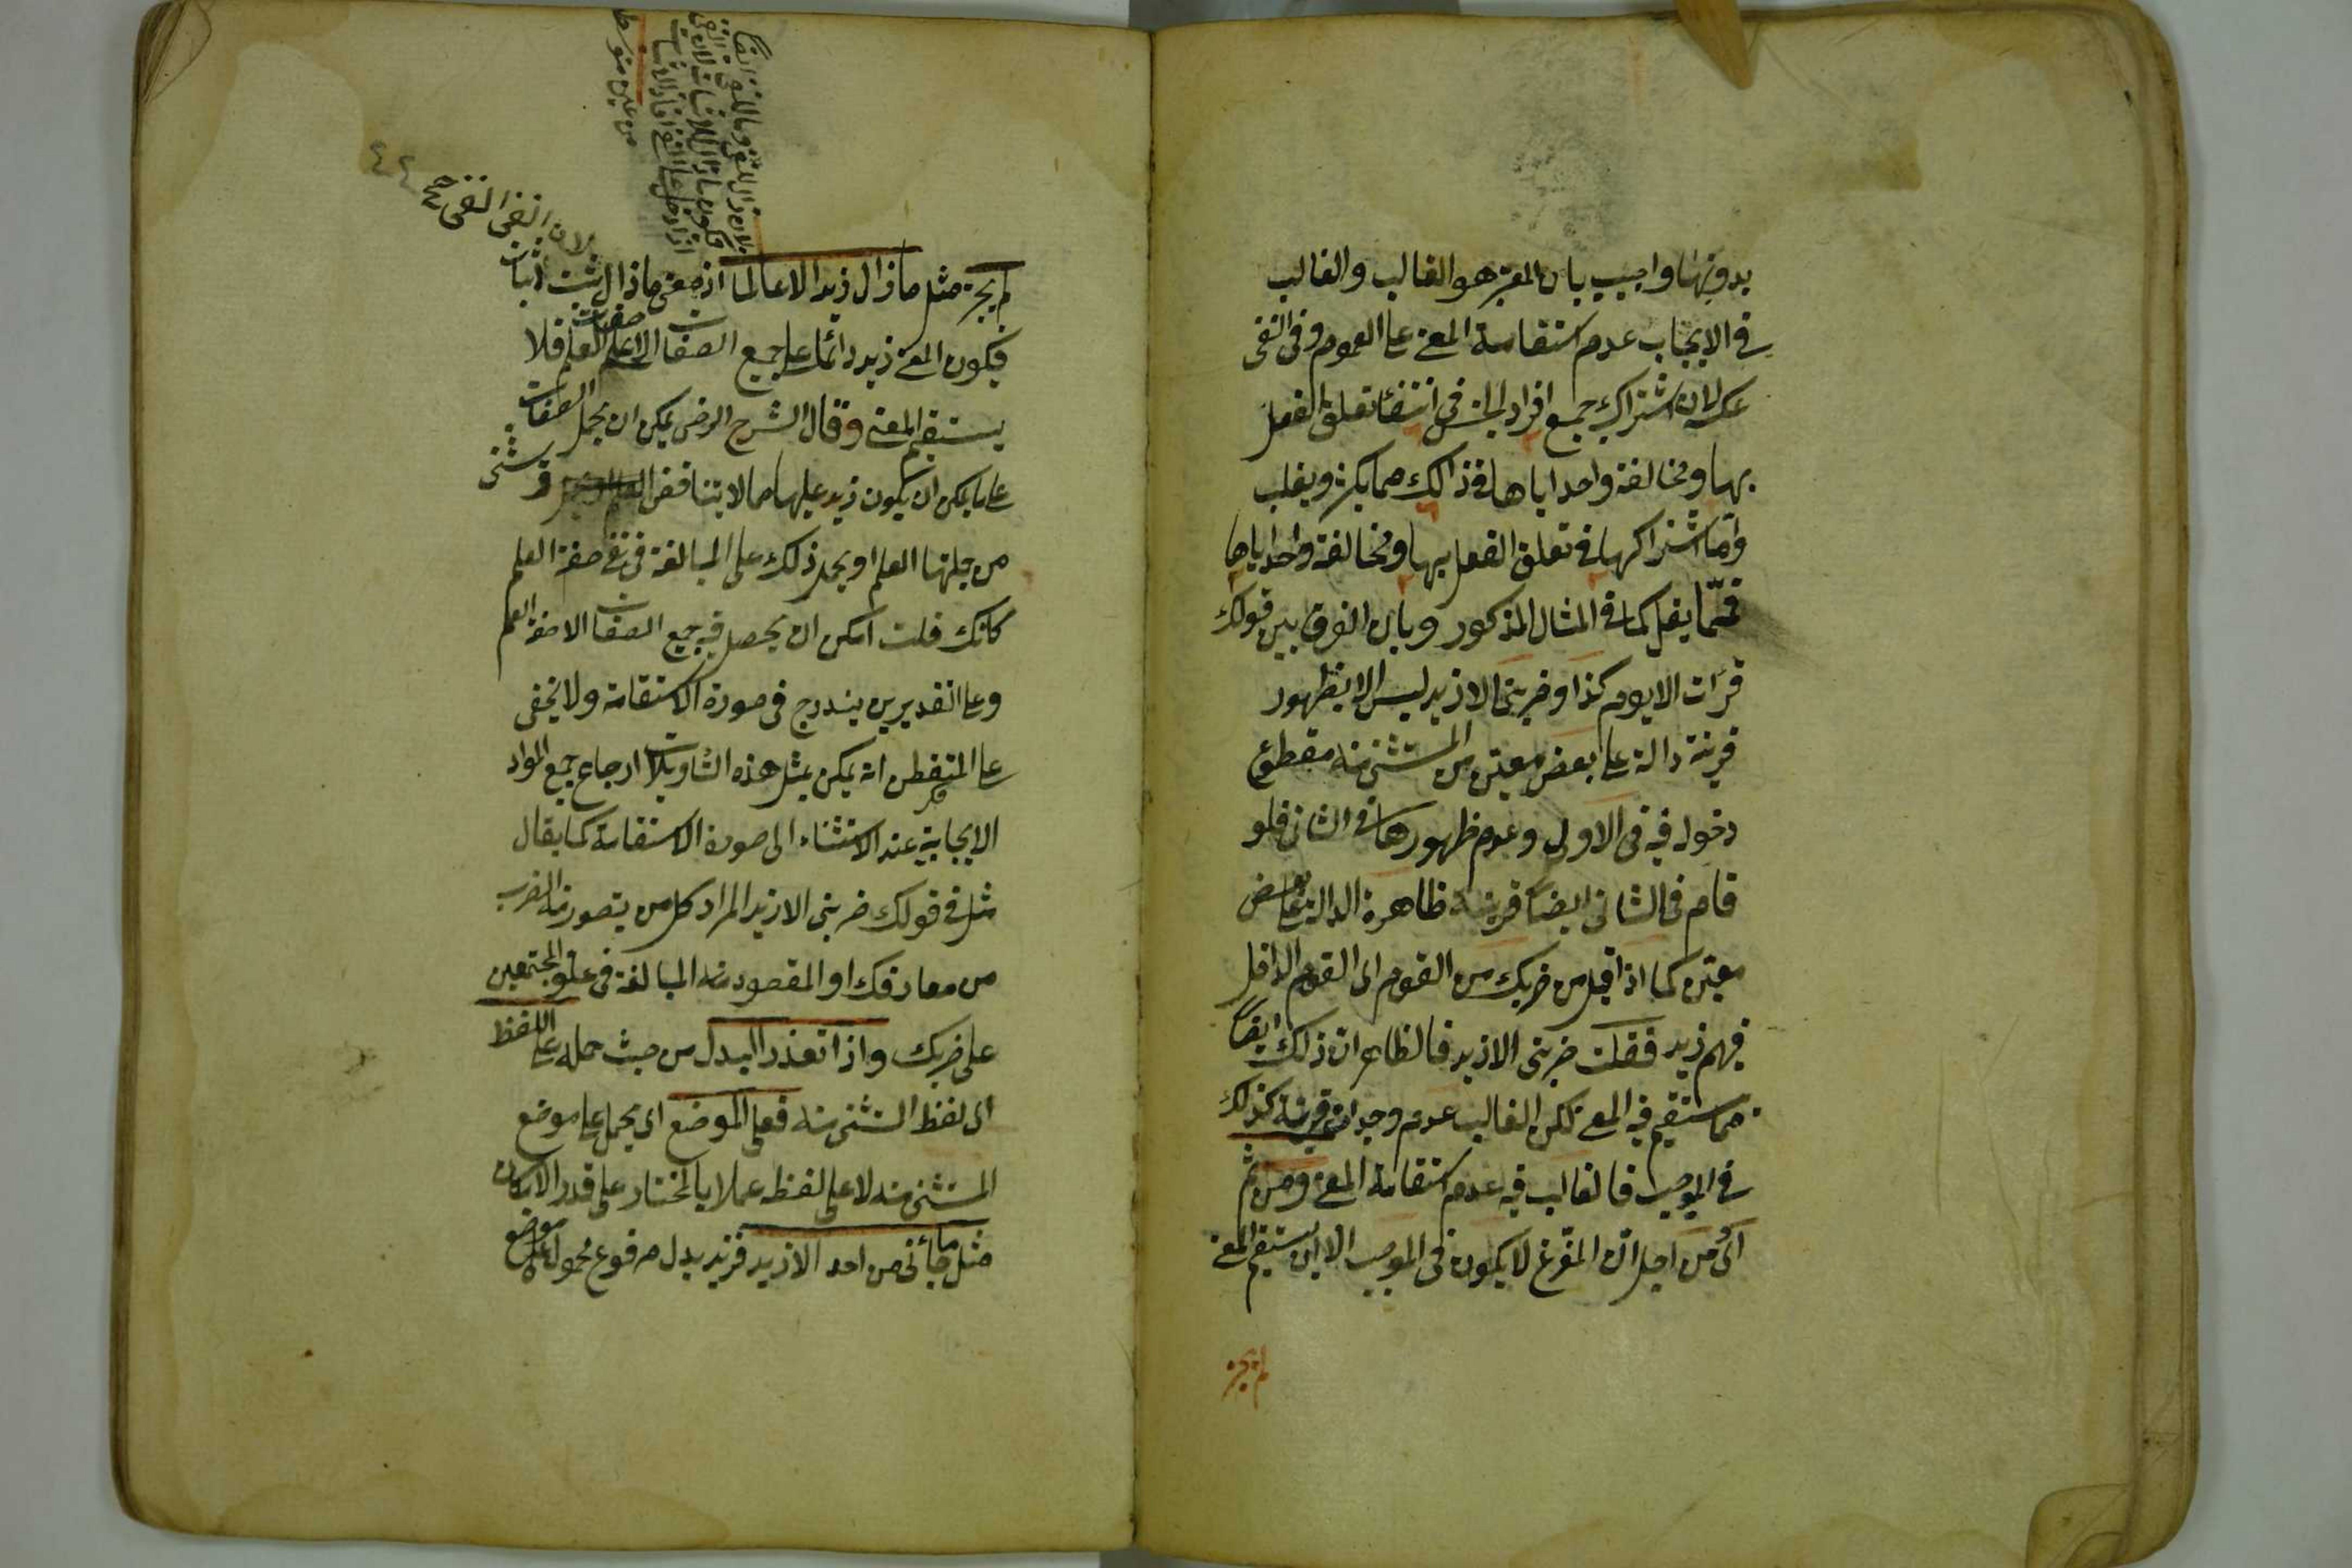 بدونها واجيب بان المعتبر هو الغالب والغالب
في الايجاب عدم استقامة المعنى على العموم وفي النفى
عكسه لان اشتراك جميع افراد الجنس في انتفاء تعلق الفعل
بها ومخالفة واحد اياها في ذالك مما يكثر ويغلب
واما اشتراكها في تعلق الفعل بها ومخالفة واحد اياها
فمما يقل كما في المثال المذكور وبان الفرق بين قولك
قرأت الا يوم كذا وضربنى الا زيد ليس الا بظهور
قرينة دالة على بعض معين من المستثنى منه مقطوع
دخوله فيه في الاول وعدم ظهورها في الثانى فلو
قام في الثانى ايضا قرينة ظاهرة الدالة على بعض
معين كما اذا قيل من ضربك من القوم اى القوم الداخل
فيهم زيد فقلت ضربنى الا زيد فالظاهر ان ذلك ايضا
مما يستقيم فيه المعنى لكن الغالب عدم وجدان قرينة كذلك
في الموجب فالغالب فيه عدم استقامة المعنى ومن ثم
اى من اجل ان المفرغ لا يكون في الموجب الا ان يستقيم المعنى
لم يجز
لم يجز مثل ما زال زيد الا عالما اذ معنى ما زال ثبت اثبات
فيكون المعنى زيد دائما على جميع الصفات الا على صفة العلم فلا
يستقيم المعنى وقال الشرح الرضى يمكن ان يحمل الصفات
على ما يمكن ان يكون زيد عليها مما لا يتناقض
من جملتها العلم او يحمل ذلك على المبالغة في نفى صفة العلم
كانك قلت امكن ان يحصل فيه جميع الصفات الا صفة العلم
وعلى التقديرين يندرج في صورة الاستقامة ولا يخفى
على المتفطن انه يمكن بمثل هذه التأويلات ارجاع جميع المواد
الايجابية عند الاستثناء الى صورة الاستقامة كما يقال
مثل في قولك ضربنى الا زيد المراد كل من يتصور منه الضرب
من معارفك او المقصود منه المبالغة في غلو المجتمعين
على ضربك واذا تعذر البدل من حيث حمله على اللفظ
اى لفظ المستثنى منه فعلى الموضع اى يحمل على موضع
المستثنى منه لا على لفظه عملا بالمختار على قدر الامكان
مثل ما جأنى من احد الا زيد فزيد بدل مرفوع محمول على موضع
لان نفى النفى